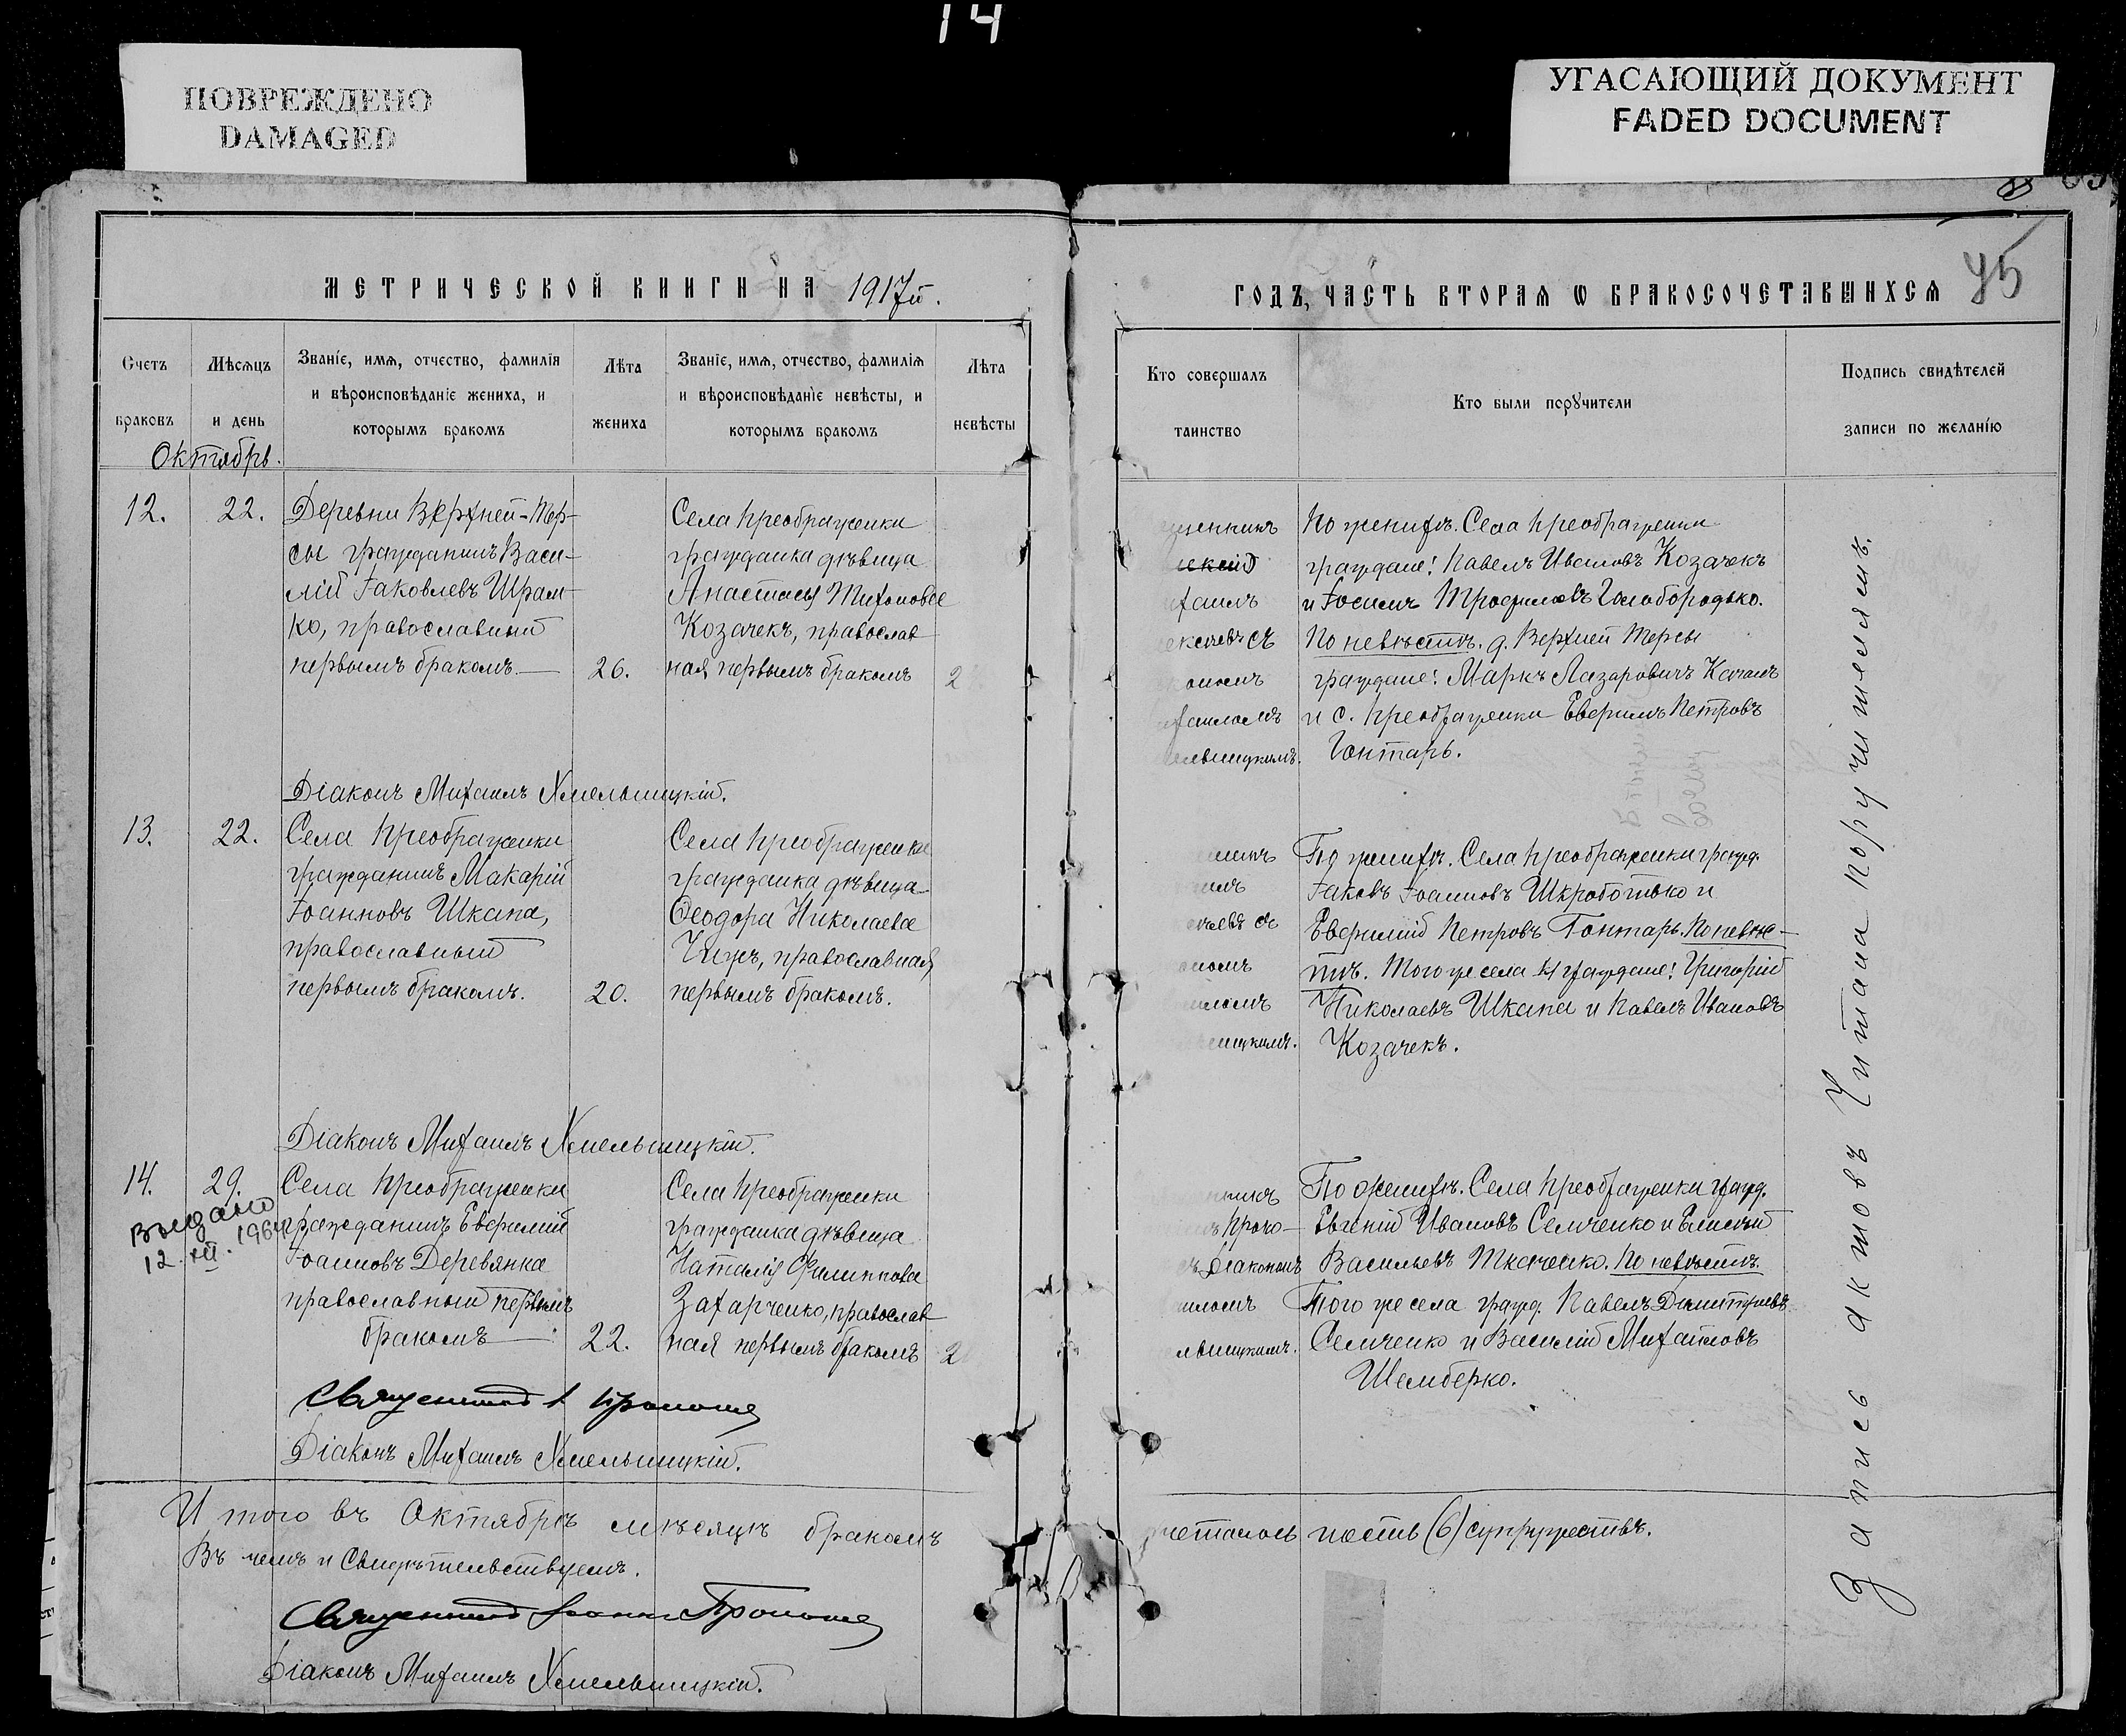 14
ПОВРЕЖДЕНО
DAMAGED
УГАСАЮЩИЙ ДОКУМЕНТ
FADED DOCUMENT
МЕТРИЧЕСКОЙ КНИГИ НА 1917й.
Счетъ браковъ
Мѣсяцъ и день
Званіе, имя, отчество, фамилія
и вѣроисповѣданіе жениха, и
которымъ бракомъ
Лѣта
жениха
Званіе, имя, отчество, фамилія
и вѣроисповѣданіе невѣсты, и
которымъ бракомъ
Лѣта
невѣсты
Октябрь.
12.
22.
Деревни Верхней-Тер-
сы гражданинъ Васи-
лій Іаковлевъ Шрам-
ко, православный
первымъ бракомъ.
26.
Села Преображенки
гражданка дѣвица
Анастасія Тихоновое
Козачекъ, православ
ная, первымъ бракомъ
2
Діаконъ Михаилъ Хмельницкій.
13.
22.
Села Преображенки
гражданинъ Макарій
Іоанновъ Шкапа,
православный
первымъ бракомъ.
20.
Села Преображенки
гражданка дѣвица
Ѳеодора Николаева
Чижъ, православная,
первымъ бракомъ.
Діаконъ Михаилъ Хмельницкій.
14.
29.
Выдано
12. XII. 196
Села Преображенки
гражданинъ Евфимій
Іоанновъ Деревянка
православный первымъ
бракомъ
22.
Села Преображенки
гражданка дѣвица
Наталія Филиппова
Захарченко, православ
ная первымъ бракомъ
2
Священникъ І
Діаконъ Михаилъ Хмельницкій.
Итого въ Октябрѣ мѣсяцѣ бракомъ
Въ чемъ и Свидѣтельствуемъ.
Священникъ Іоаннъ
Діаконъ Михаилъ Хмельницкій.
45
ГОДЪ, ЧАСТЬ ВТОРАЯ Ѡ БРАКОСОЧЕТАВШИХСЯ
Кто совершалъ
таинство
Кто были поручители
Подпись свидѣтелей
записи по желанію
щенникъ
хаилъ
ексѣевъ съ
ономъ
хаиломъ
ельницкимъ.
По женихѣ. Села Преображенки
граждане: Павелъ Ивановъ Козачекъ
и Іосифъ Трофимовъ Голобородько.
По невѣстѣ. д. Верхней Терсы
граждане: Маркъ Лазаровичъ Качанъ
и с. Преображенки Евфимъ Петровъ
Гонтарь.
никъ
илъ
ѣевъ съ
ономъ
иломъ
ницкимъ.
По женихѣ. Села Преображенки гражд.
Іаковъ Іоанновъ Шкроботько и
Евфимій Петровъ Гонтарь. По невѣс-
тѣ. Того же села граждане: Григорій
Николаевъ Шкапа и Павелъ Ивановъ
Козачекъ.
никъ
Діакономъ
иломъ
льницкимъ.
По женихѣ. Села Преображенки гражд.
Евгеній Ивановъ Семченко и Елисей
Васильевъ Ткаченко. По невѣстѣ.
Того же села гражд. Павелъ Димитріевъ
Семченко и Василій Михайловъ
Шемберко.
четалось шесть (6) супружествъ.
Запись актовъ Читана поручителямъ.